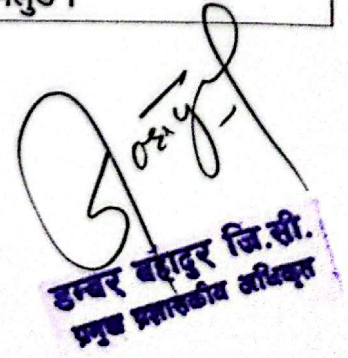 डम्बर बहादुर जि.सी.
प्रमुख प्रशासकीय अधिकृत